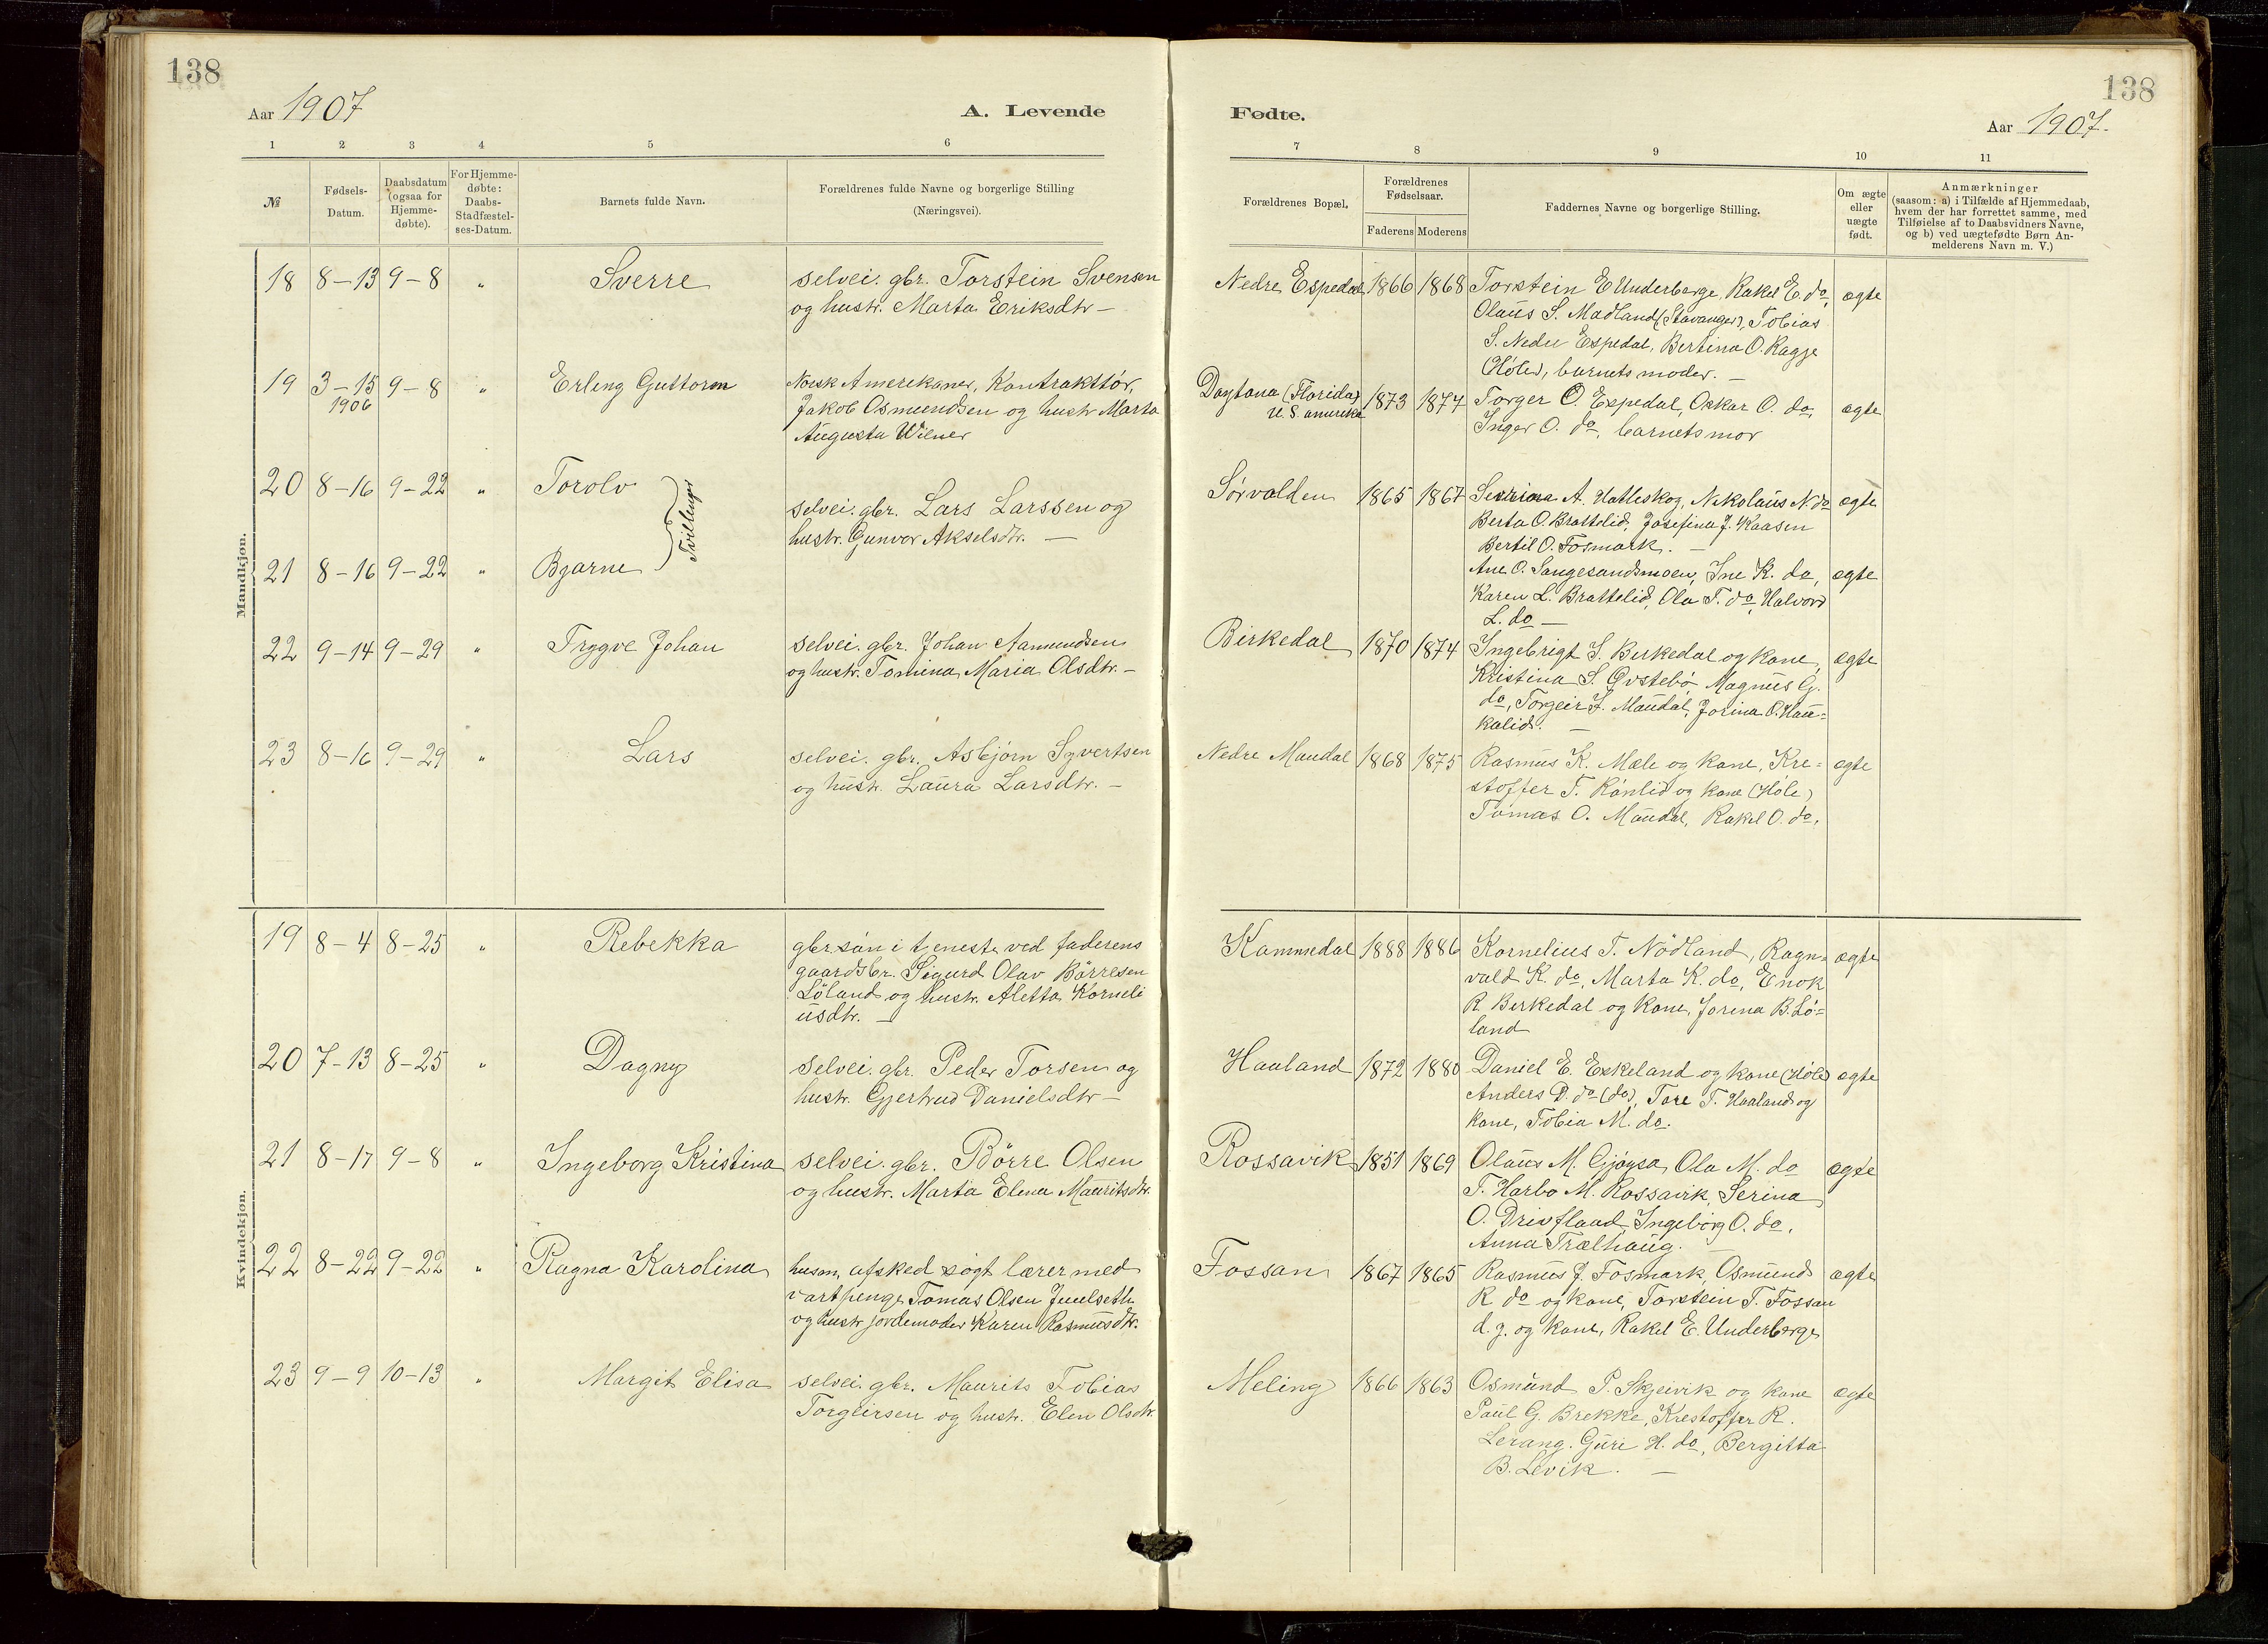 138
Aar 1907
A. Levende
1 2 3 4 5 6
№
Fødsels-
Datum.
Daabsdatum
(ogsaa for
Hjemme-
døbte).
For Hjemme-
døbte:
Daabs-
Stadfæstel-
ses-Datum.
Barnets fulde Navn.
Forældrenes fulde Navne og borgerlige Stilling
(Næringsvei).
Mandkjøn.
18 8-13 9-8 " Sverre selvei. gbr. Torstein Svensen
og hustr. Marta Eriksdtr –
19 3-15 9-8 " Erling Guttorm Norsk Amerikaner, Kontrakttör,
1906
Jakob Osmundsen og hustr Marta
Augusta Wilner
20 8-16 9-22 " Torolv
Tvillinger
selvei. gbr. Lars Larssen og
hustr. Gunvor Akselsdtr. –
21 8-16 9-22 " Bjarne
22 9-14 9-29 " Trygve Johan selvei. gbr. Johan Aamundsen
og hustr. Tomina Maria Olsdtr. –
23 8-16 9-29 " Lars selvei. gbr. Asbjörn Syvertsen
og hustr. Laura Larsdtr. –
Kvindekjøn.
19 8-4 8-25 " Rebekka gbr. sön i tjeneste ved faderens
gaardsbr. Sigurd Olav Börresen
Löland og hustr. Aletta Korneli
usdtr. –
20 7-13 8-25 " Dagny selvei. gbr. Peder Torsen og
hustr. Gjertrud Danielsdtr –
21 8-17 9-8 " Ingeborg Kristina selvei. gbr. Börre Olsen
og hustr. Marta Elena Mauritsdtr.
22 8-22 9-22 " Ragna Karolina husm, afsked sögt lærer med
vartpenge Tomas Olsen
og hustr jordemoder Karen Rasmusdtr.
23 9-9 10-13 " Margit Elisa selvei. gbr. Maurits Tobias
Torgeirsen og hustr. Elen Olsdtr.
138
Fødte.
Aar 1907.
7 8 9 10 11
Forældrenes Bopæl.
Forældrenes
Fødselsaar.
Faderens Moderens
Faddernes Navne og borgerlige Stilling.
Om ægte
eller
uægte
født.
Anmærkninger
(saasom: a) i Tilfælde af Hjemmedaab,
hvem der har forrettet samme, med
Tilføielse af to Daabsvidners Navne,
og b) ved uægtefødte Børn An-
melderens Navn m. V.)
Nedre Espedal 1866 1868 Torstein E Underberge, Rakel E. do, ægte
Olaus S. Madland (Stavanger), Tobias
S. Nedre Espedal, Bertina O. Ragje
(Höle), barnets moder. –
Daytona (Florida) 1873 1874 Torger O. Espedal, Oskar O. do, ægte
U. S. amerika
Inger O. do, barnets mor
Sörvolden 1865 1867 A. Hatleskog, Nikolaus N. do ægte
Berta O. Brattelid, Josefina J. Kaasen
Bertil O. Fosmark. –
Ane O. Langesandsmoen, Ine K. do, ægte
Karen L. Brattelid, Ola T. do, Halvord
L. do –
Birkedal 1870 1874 Ingebrigt S. Birkedal og kone, ægte
Kristina S. Øvstebö Magnus G.
do, Torgeir J. Maudal, Jorina O. Hau=
kalid. –
Nedre Maudal 1868 1875 Rasmus K. Mæle og kone, Kre= ægte
stoffer T. Rönlid og kone (Höle)
Tomas O. Maudal, Rakel O. do.
Kammedal 1888 1886 Kornelius T. Nödland, Ragn= ægte
vald K. do, Marta K. do, Enok
R Birkedal og kone, Jorina B. Lö=
land
Haaland 1872 1880 Daniel E. Eskeland og kone (Höle) ægte
Anders D. do (do), Tore T. Haaland og
kone, Tobia M. do.
Rossavik 1851 1869 Olaus M. Gjöysa, Ola M. do ægte
T. Harbo M. Rossavik, Serina
O. Drivfland, Ingeborg O. do,
Anna Trælhaug. –
Fossan 1867 1865 Rasmus J. Fosmark, Osmund ægte
R. do og kone, Torstein T. Fossan
d. y. og kone, Rakel E. Underberge
Meling 1866 1863 Osmund P. Skjeivik og kone ægte
Paul G. Brekke, Krestoffer R.
Lerang. Guri H. do, Bergitta
B. Levik. –